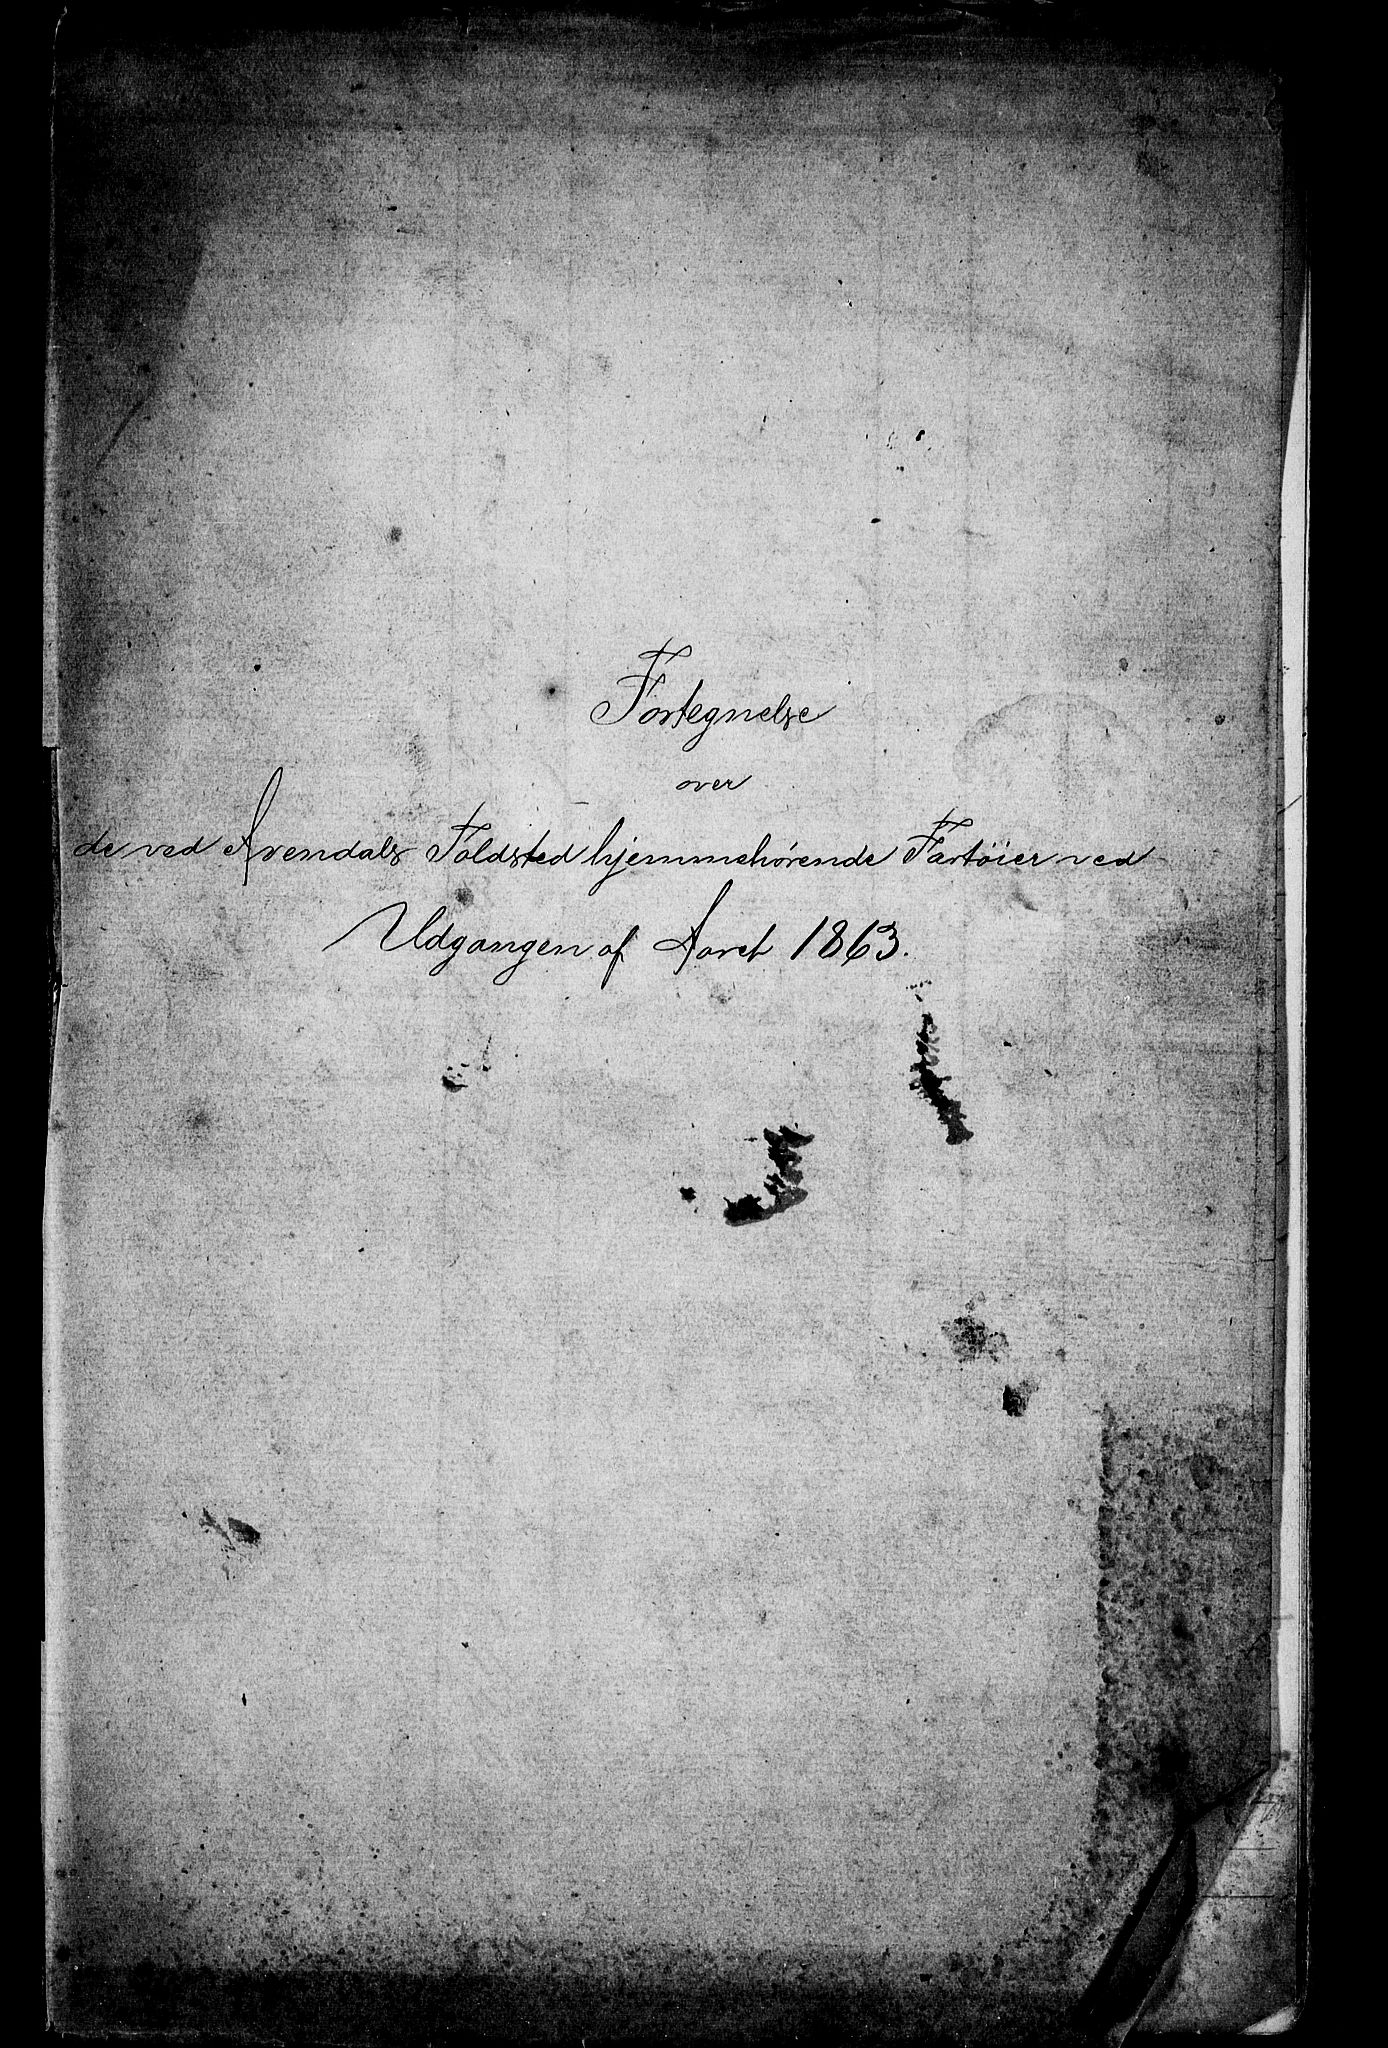 Fortegnelse
over
de ved Arendals Toldsted hjemmehørende Fartøier ved
Udgangen af Aaret 1863.